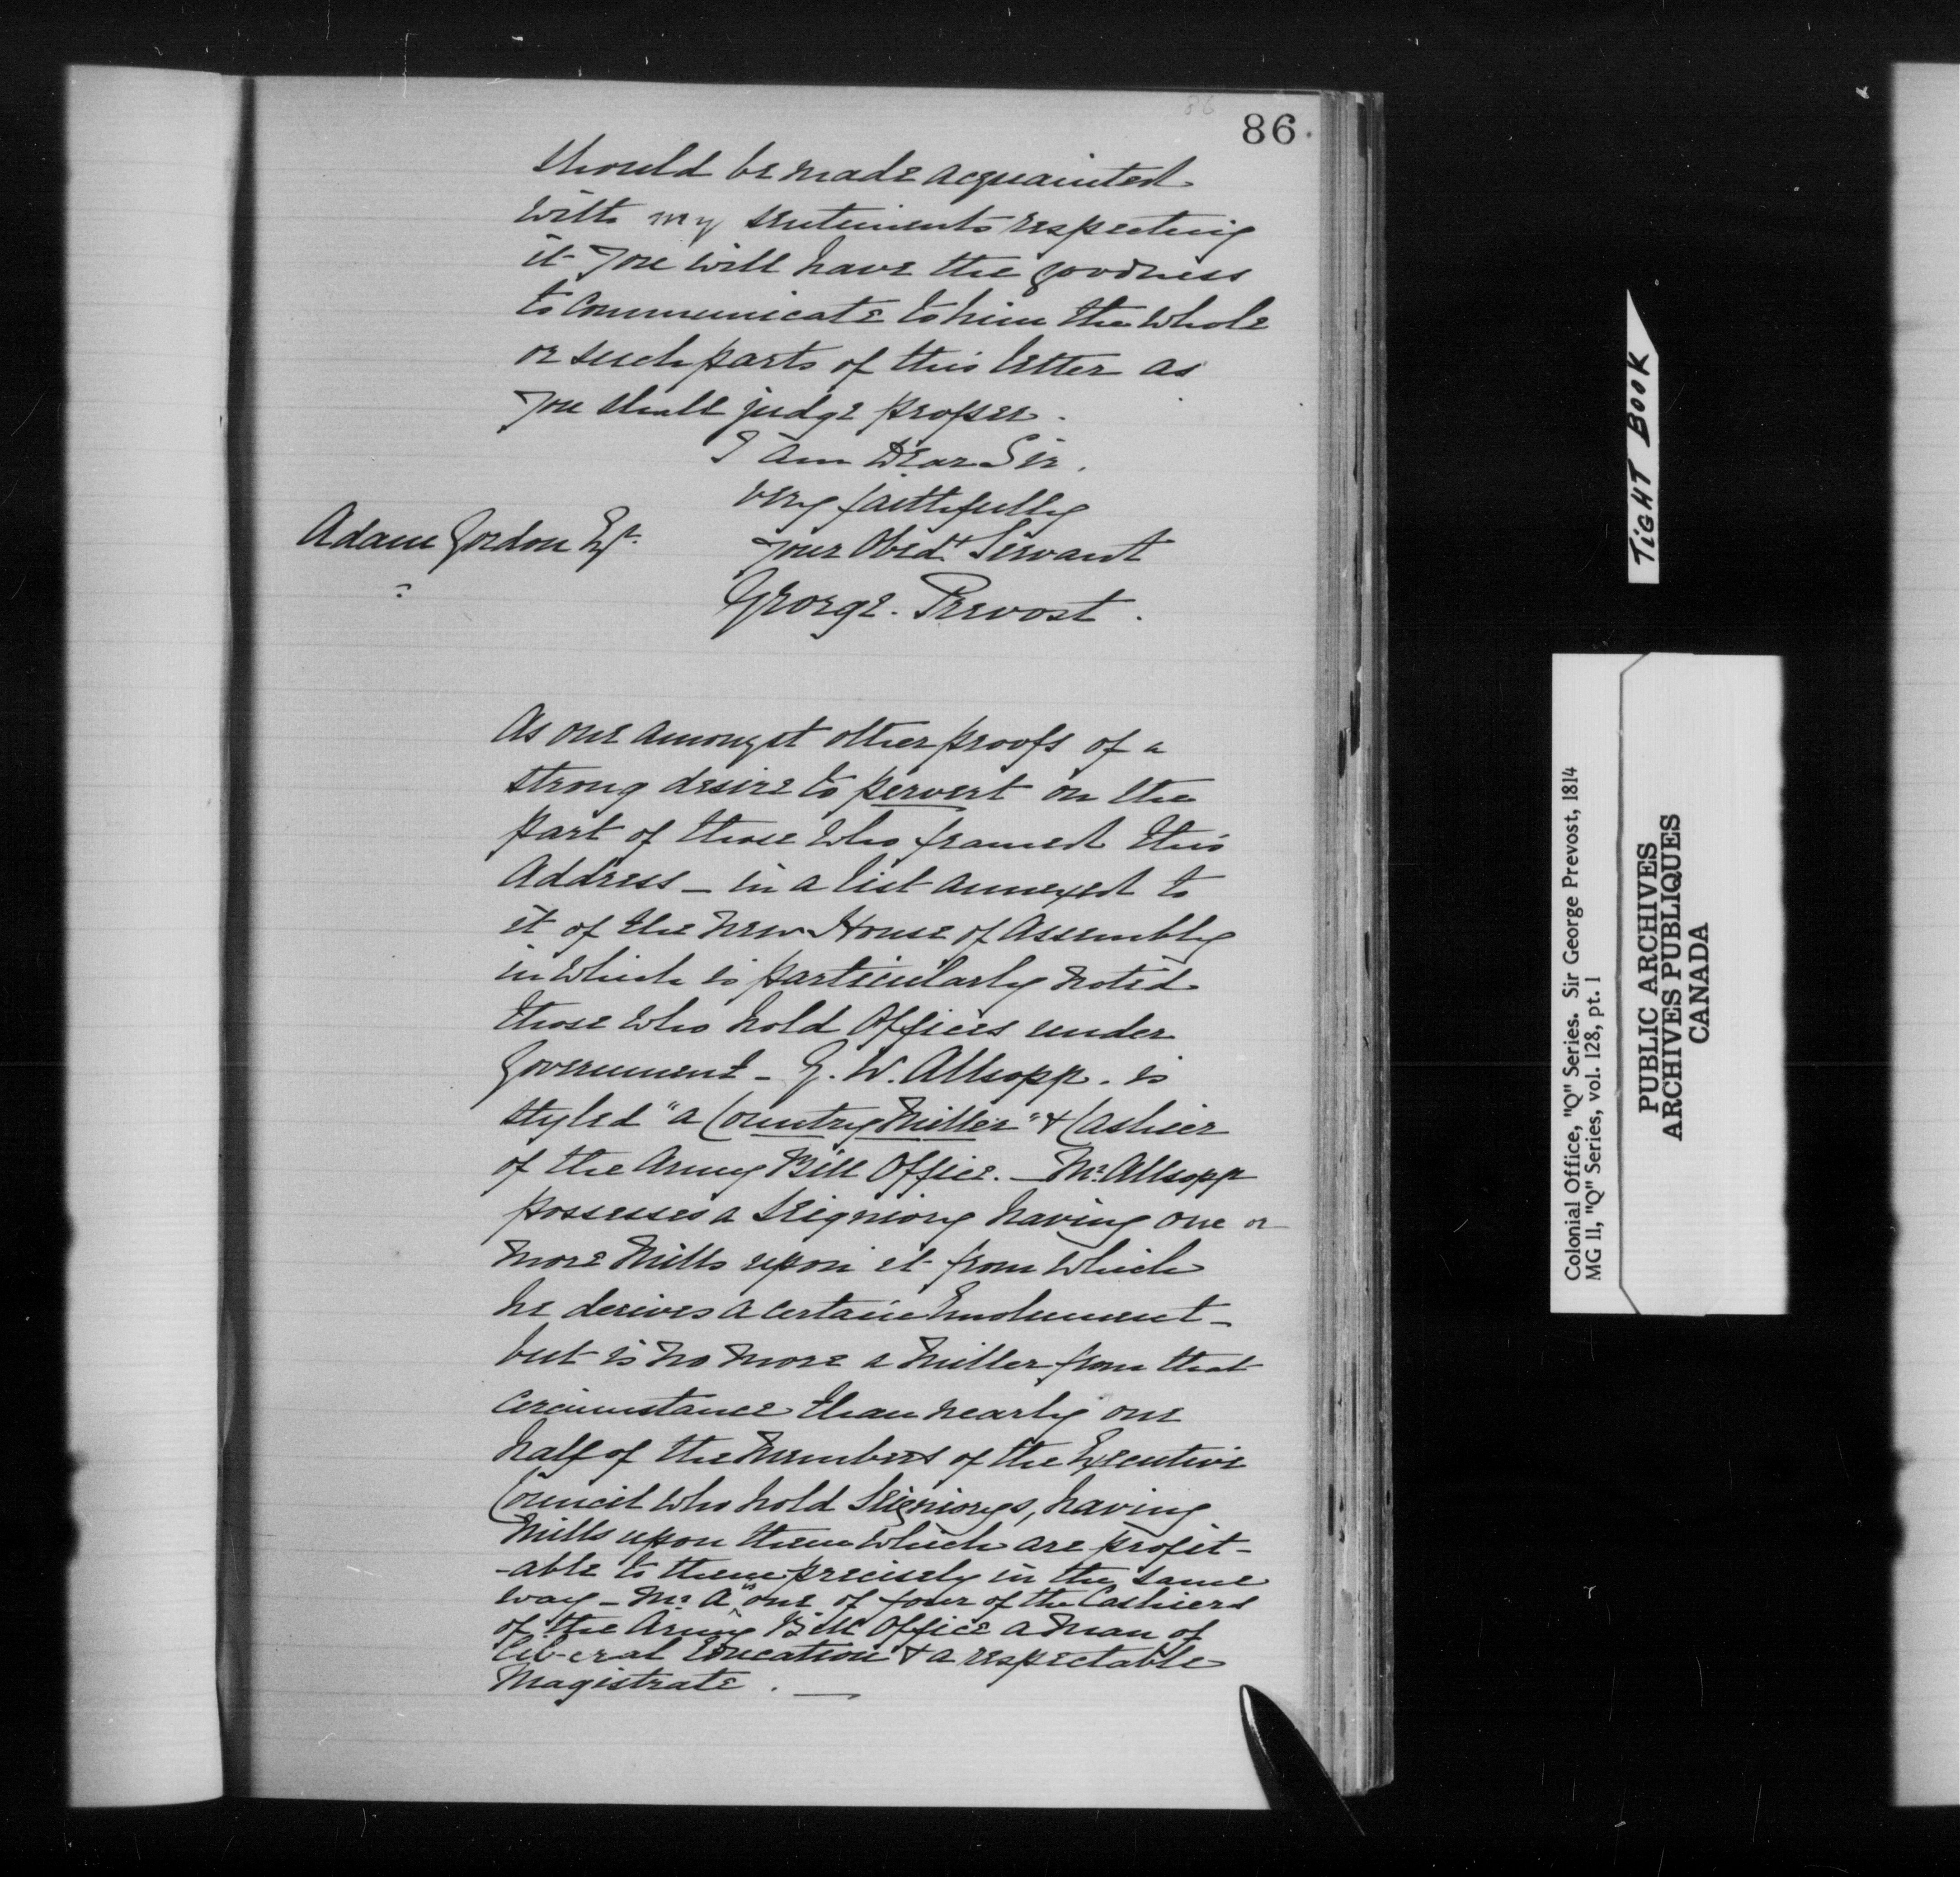 86
86.
should be made acquainted
with my sentiments respecting
it you will have the goodness
to communicate to him the whole
or such parts of this letter as
you shall judge proper.
I am Dear Sir.
very faithfully
Adam Gordon Esqr.
your Obedt Servant
George. Prevost.
As one amongst other proofs of a
strong desire to pervert on the
part of those who framed this
Address — in a list annexed to
it of the new House of Assembly
in which is particularly noted
those who hold Offices under
Government — G. W. Allsopp. is
styled "a Country Miller" & Cashier
of the Army Bill Office. — Mr. Allsopp
possesses a Seigniory having one or
more Mills upon it from which
he derives a certain Emolument —
but is no more a Miller from that
circumstance than nearly one
half of the Members of the Executive
Council who hold Seigniorys, having
Mills upon them which are profit-
-able to them precisely in the same
way — Mr. A " one of four of the Cashiers
of the Army Bill Office a Man of
liberal Education & a respectable
Magistrate. —
TIGHT BOOK
Colonial Office, "Q" Series. Sir George Prevost, 1814
MG 11, "Q" Series, vol. 128, pt. 1
PUBLIC ARCHIVES
ARCHIVES PUBLIQUES
CANADA